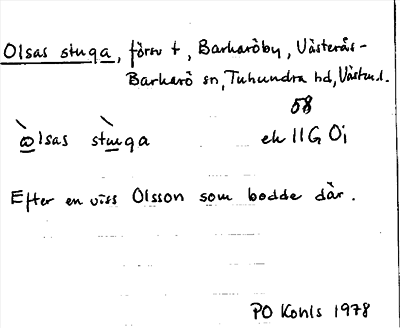 Olsas stuga, försv t, Barkaröby, Västerås-
Barkarö sn, Tuhundra hd, Västm.l.
58
ek 11G 0i
òlsas stùga
Efter en viss Olsson som bodde där.
PO Kohls 1978